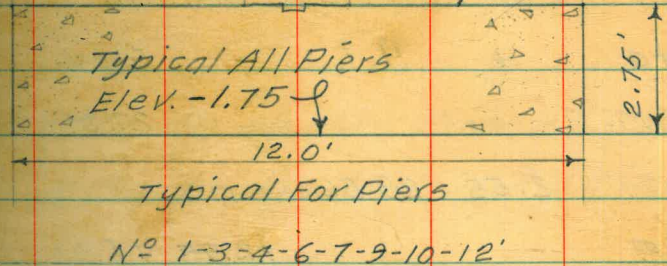 Typical All Piers
Elev. -1.75
2.75'
12.0'
Typical For Piers
Nº 1-3-4-6-7-9-10-12'